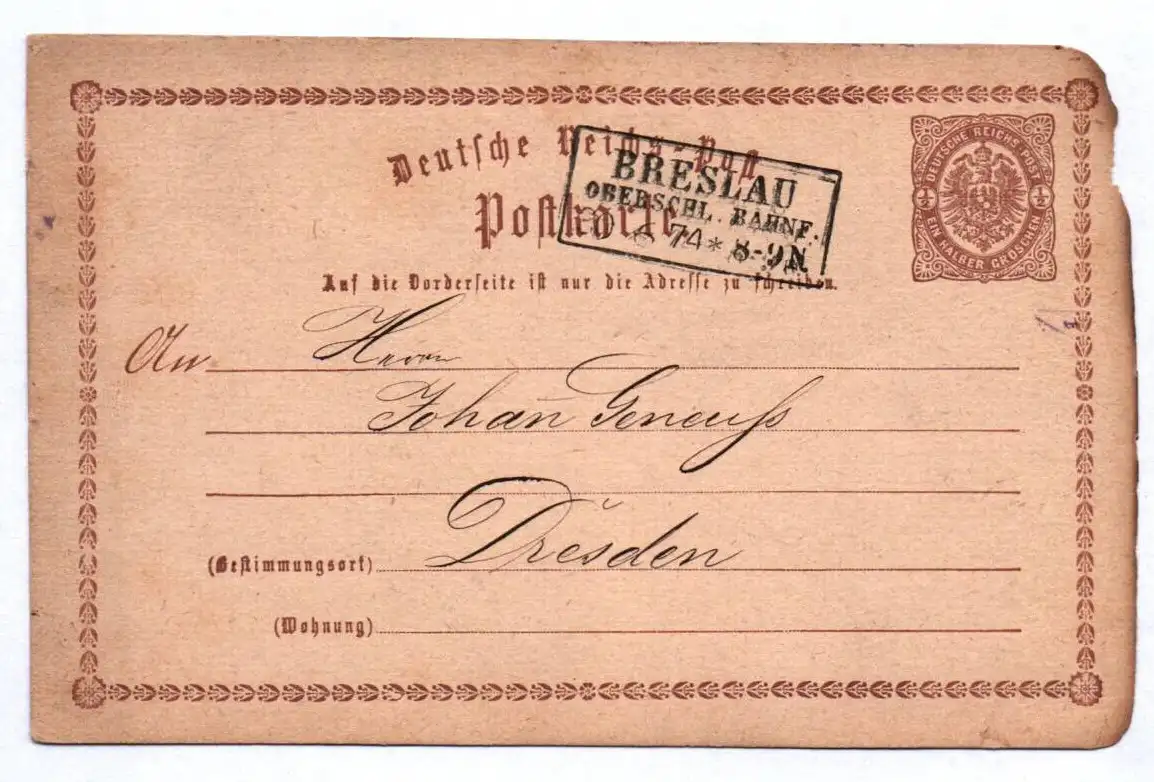 Deutsche Reichs-Post
Postkarte
BRESLAU
OBERSCHL. BAHNF.
74 * 8-9N
DEUTSCHE REICHS-POST
½ ½
EIN HALBER GROSCHEN
Auf die Vorderseite ist nur die Adresse zu schreiben.
An Herrn
Johan̅ Geneuss
Dresden
(Bestimmungsort)
(Wohnung)